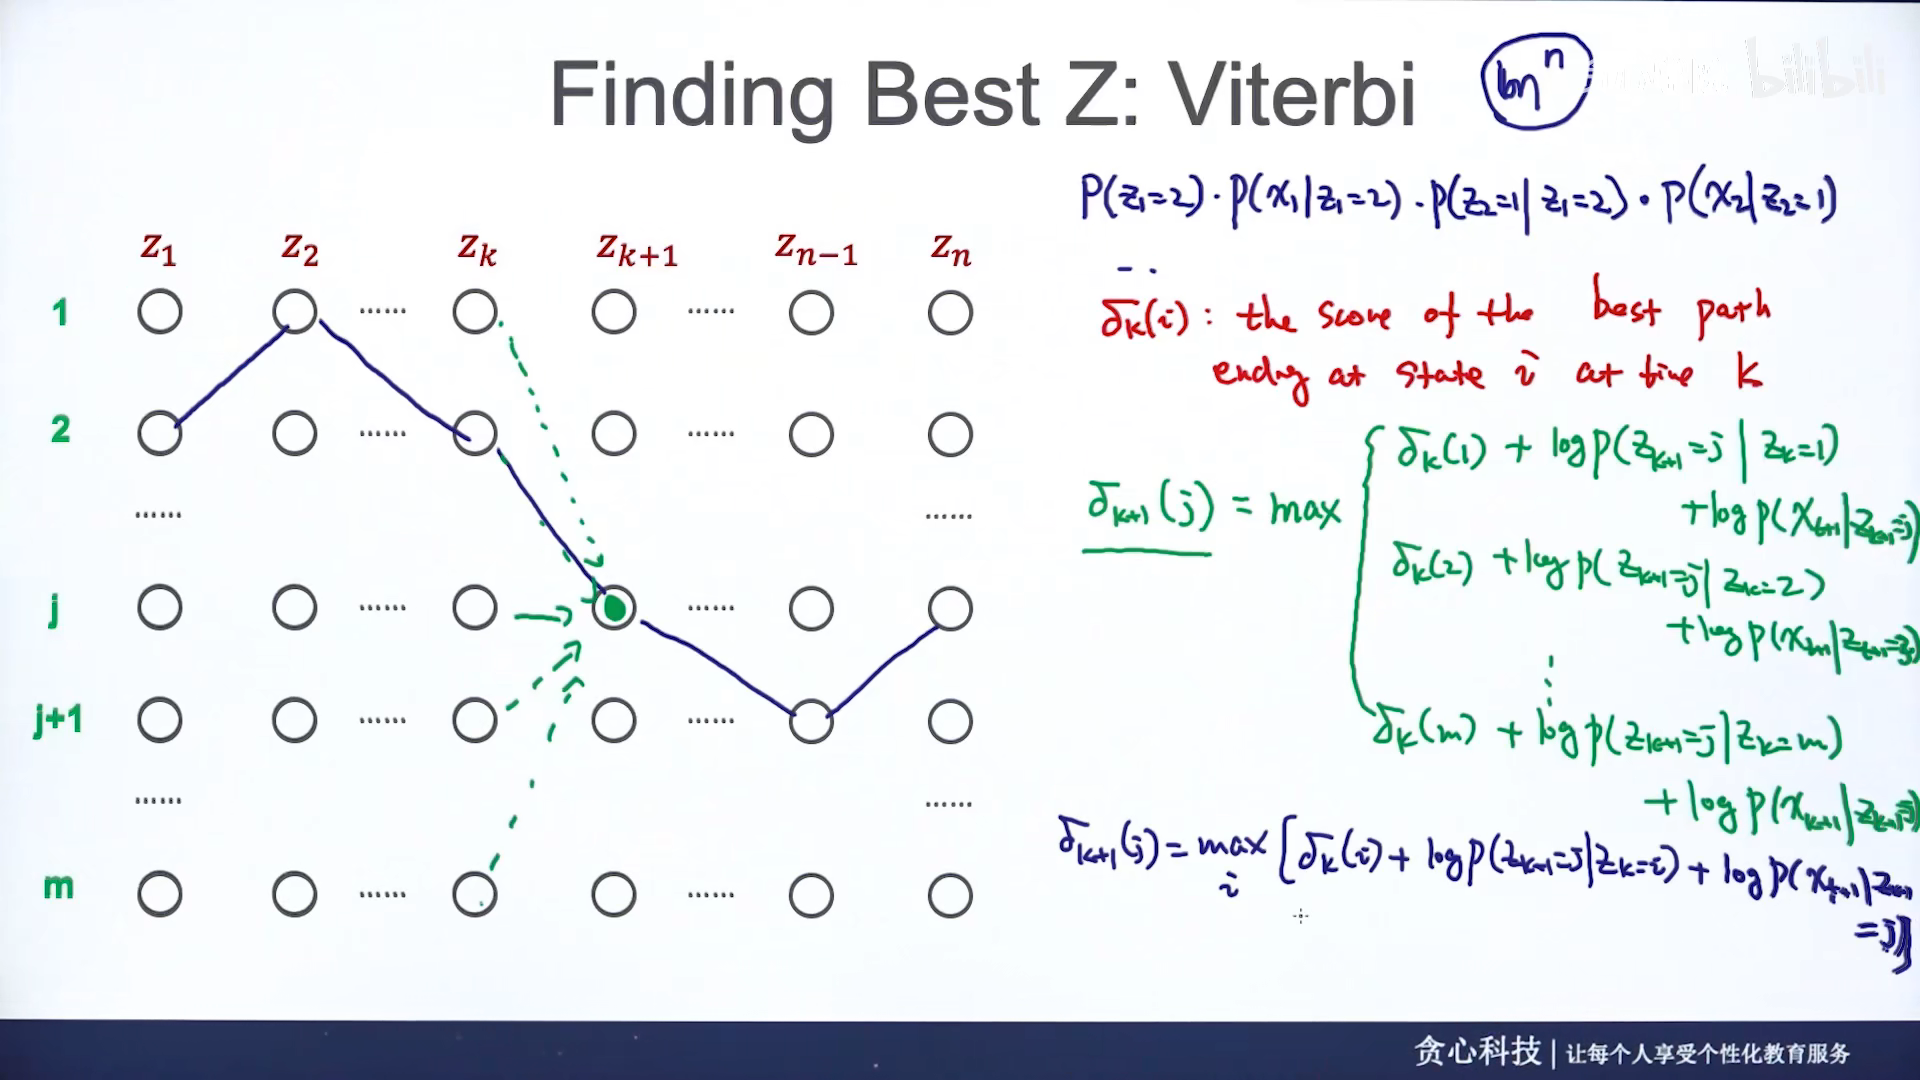 Finding Best Z: Viterbi
mⁿ
bilibili
P(z₁=2)·p(x₁|z₁=2)·p(z₂=1|z₁=2)·p(x₂|z₂=1)
z₁ z₂ zₖ zₖ₊₁ zₙ₋₁ zₙ
1 ...... ......
δₖ(i): the score of the best path
ending at state i at time k
2 ...... ......
δₖ(1) + log p(zₖ₊₁=j|zₖ=1)
+log p(xₖ₊₁|zₖ₊₁=j)
δₖ₊₁(j) = max
...... ......
δₖ(2) + log p(zₖ₊₁=j|zₖ=2)
+log p(xₖ₊₁|zₖ₊₁=j)
j ...... ......
j+1 ...... ......
δₖ(m) + log p(zₖ₊₁=j|zₖ=m)
+ log p(xₖ₊₁|zₖ₊₁=j)
...... ......
δₖ₊₁(j) = max [δₖ(i) + log p(zₖ₊₁=j|zₖ=i) + log p(xₖ₊₁|zₖ₊₁
i
=j)]
m ...... ......
贪心科技 | 让每个人享受个性化教育服务